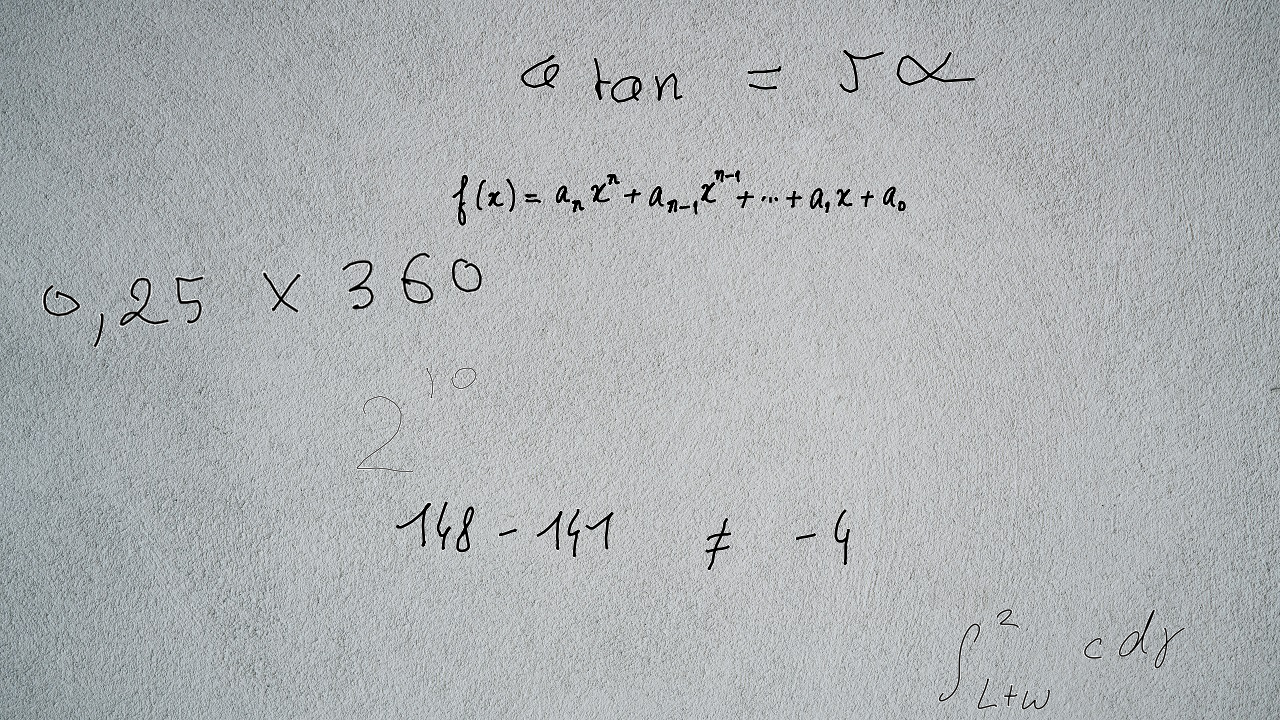 a tan = 5α
f(x) = aₙxⁿ + aₙ₋₁xⁿ⁻¹ + ... + a₁x + a₀
0,25 × 360
2¹⁰
148 - 141 ≠ -4
∫_{L+w}^{2} c dr